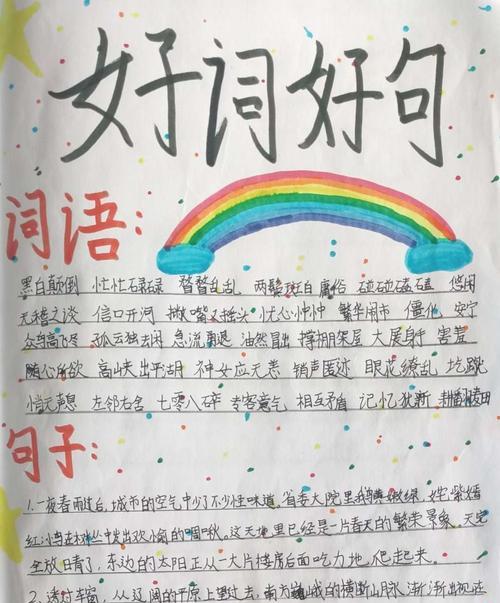 好词好句
词语:
黑白颠倒 忙忙碌碌 瞀瞀乱乱 两鬓斑白 庸俗 磕磕碰碰 悠闲
无稽之谈 信口开河 撇嘴又摇头 忧心忡忡 繁华闹市 僵化 安宁
众鸟高飞尽 孤云独去闲 急流勇退 油然冒出 撑棚架屋 大展身手 害羞
随心所欲 高峡出平湖 神女应无恙 销声匿迹 眼花缭乱
悄无声息 左邻右舍 七零八碎 专客意气 相互矛盾 记忆犹新
句子:
1.一夜春雨过后,城市的空气中少了不少怪味道。省委大院里 嫩绿,姹紫嫣
红,鸟在林丛中发出欢愉的啁啾。这天地里已经是一片春天的繁荣景象。天完
全放晴了,东边的太阳正从一大片楼房后面吃力地 爬起来。
2.透过车窗,从辽阔的平原上望过去,南方巍峨的横断山脉,渐渐出现在